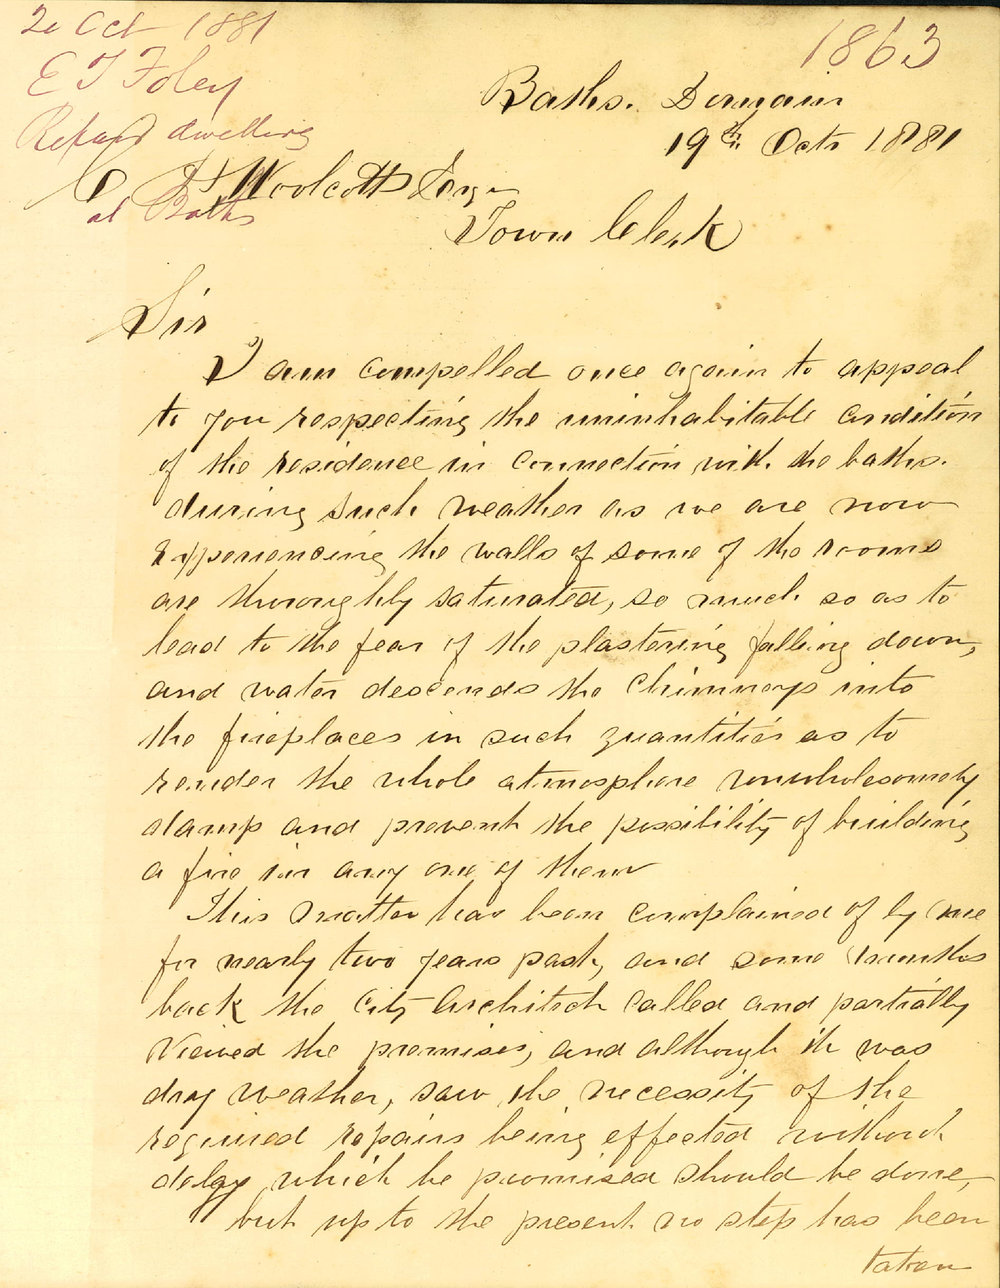 20 Oct 1881
E T Foley
Repairs dwelling
at Baths
1863
Baths. Domain
19th Octr 1881
C H Woolcott Esqr
Town Clerk
Sir
I am compelled once again to appeal
to you respecting the uninhabitable condition
of the residence in connection with the baths.
during such weather as we are now
experiencing the walls of some of the rooms
are thoroughly saturated, so much so as to
lead to the fear of the plastering falling down,
and water descends the chimneys into
the fireplaces in such quantities as to
render the whole atmosphere unwholesomely
damp and prevent the possibility of building
a fire in any one of them
This matter has been complained of by me
for nearly two years past, and some months
back the City Architect called and partially
viewed the premises, and although it was
dry weather, saw the necessity of the
required repairs being effected without
delay which he promised should be done,
but up to the present no step has been
taken